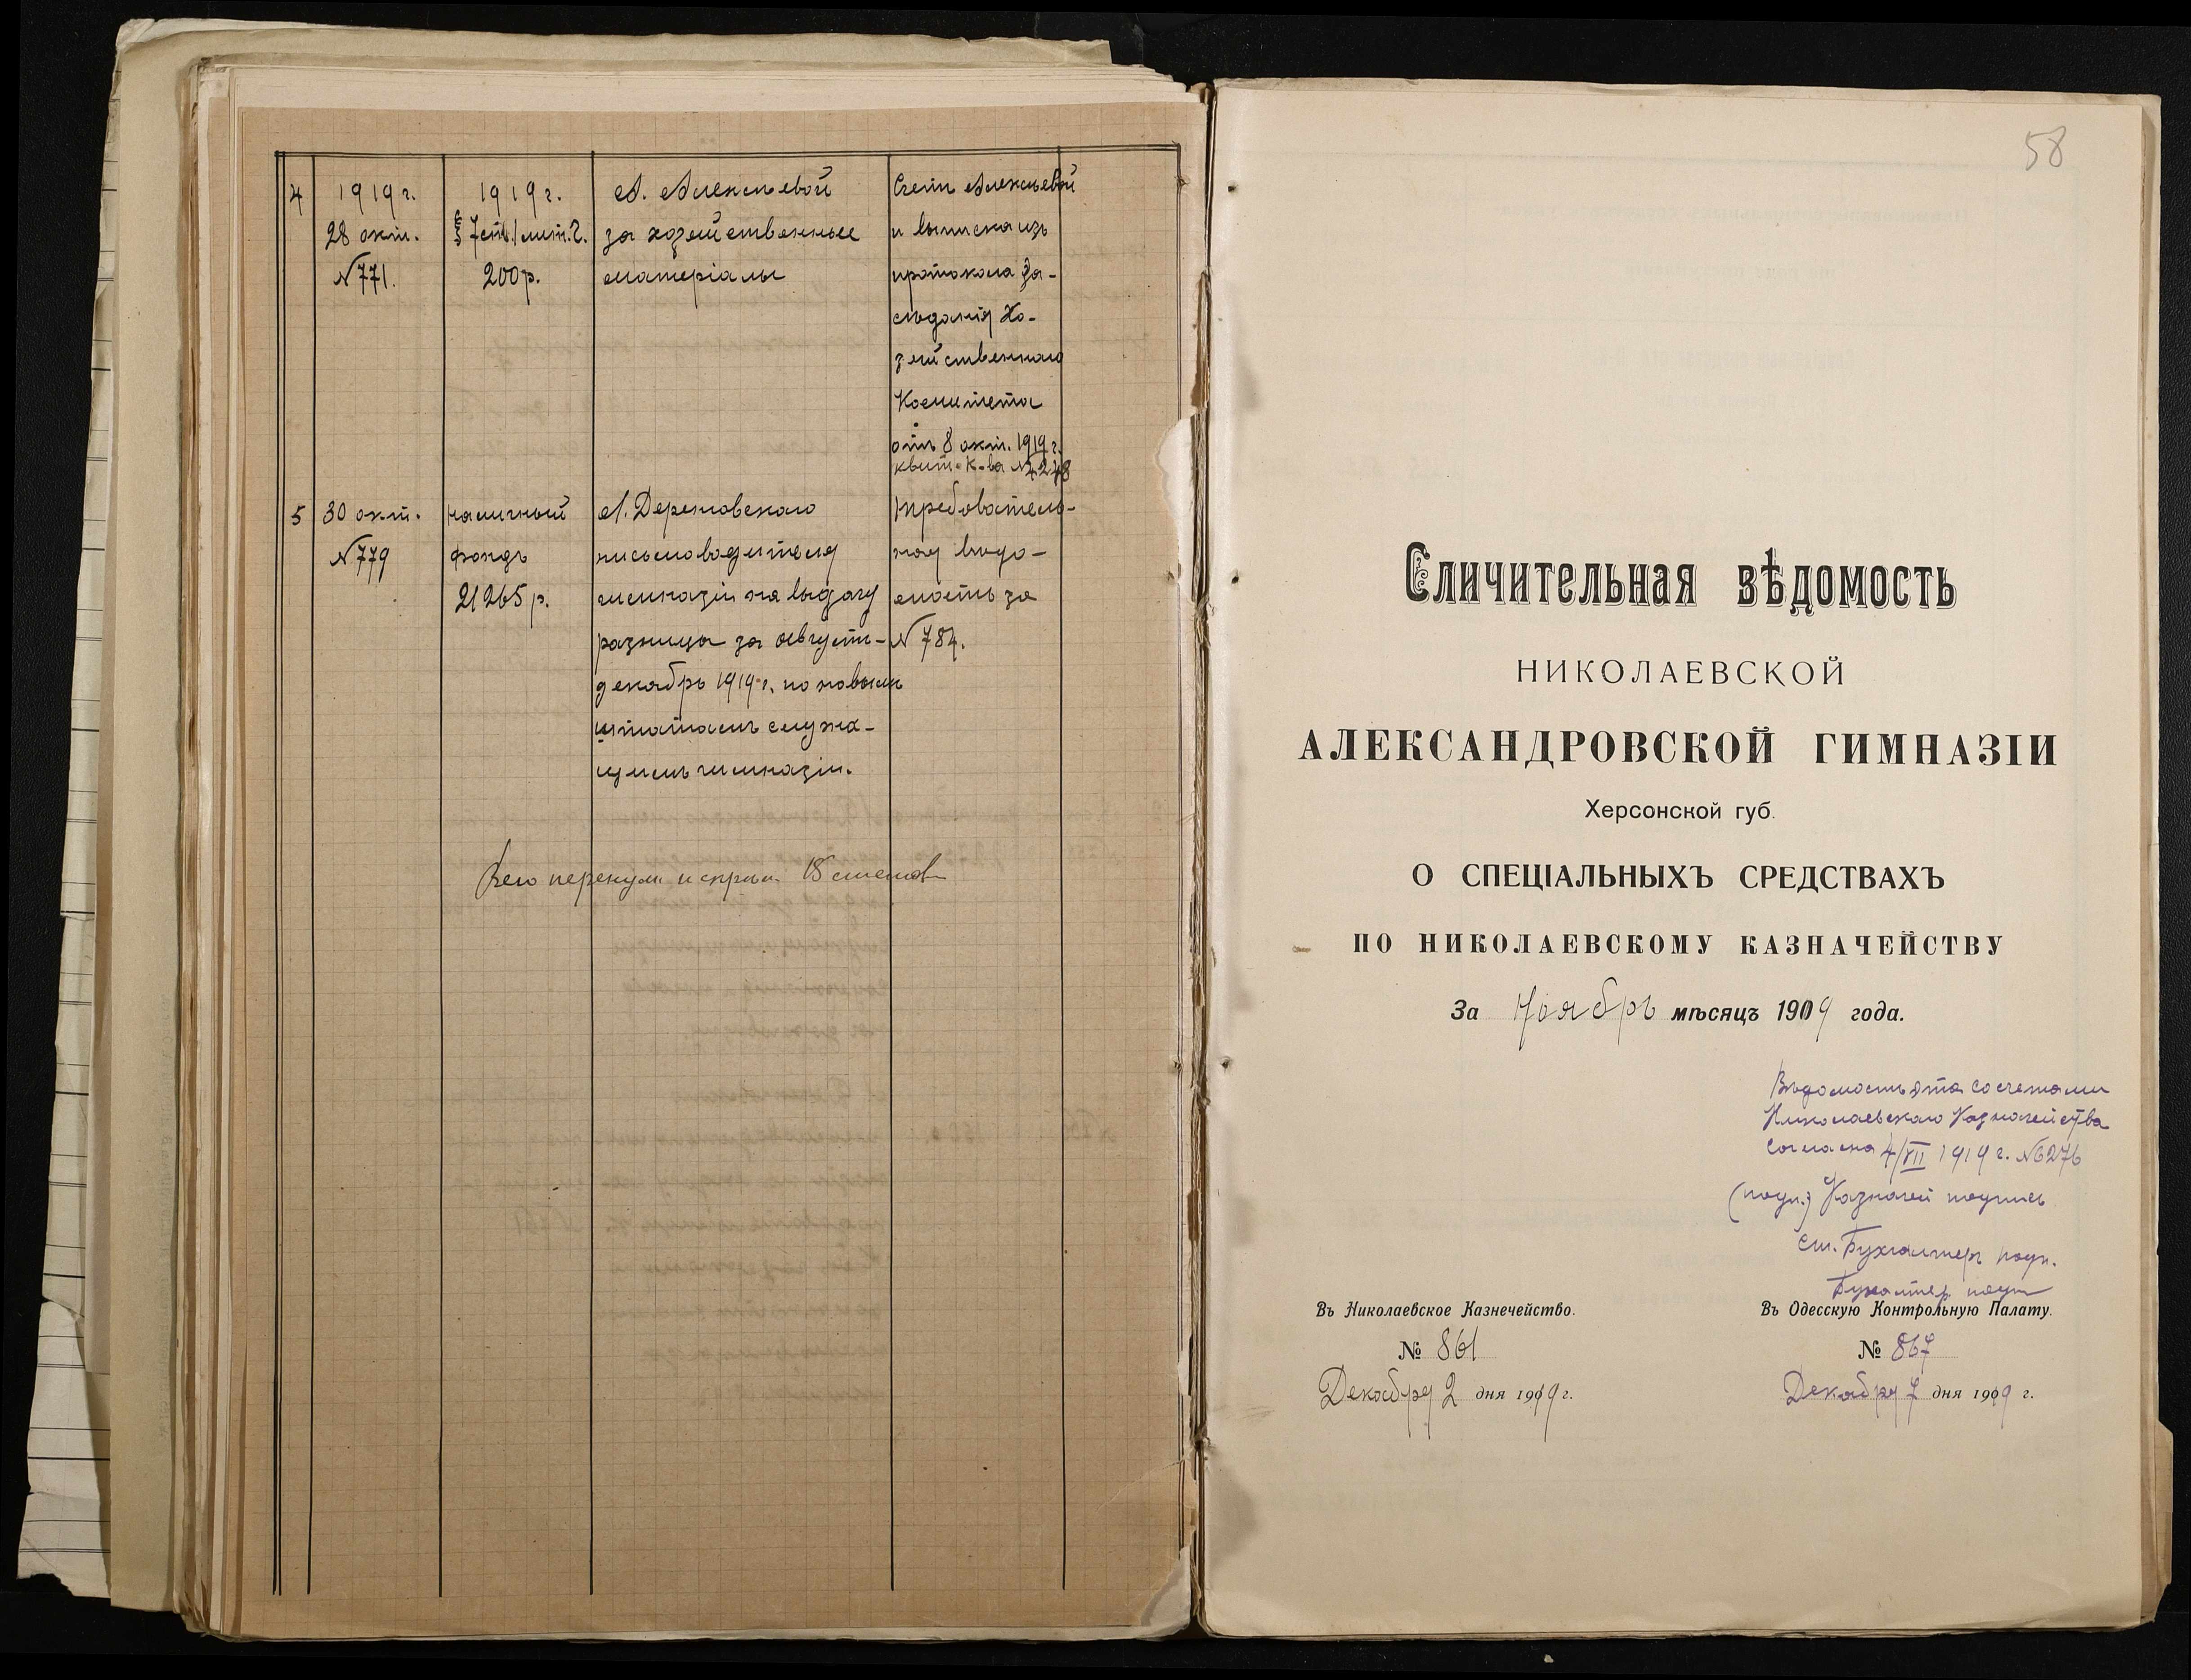 4
1919 г.
28 окт.
№ 771.
1919 г.
§ 7 ст. 1 лит. г.
200 р.
А. Алексѣевой
за хозяйственные
матеріалы
Счетъ Алексѣевой
и выписка изъ
протокола За-
сѣданія Хо-
зяйственнаго
Комитета
отъ 8 окт. 1919 г.
5
30 окт.
№ 779
наличный
фондъ
21265 р.
письмоводителя
гимназіи на выдачу
разницы за августъ-
декабрь 1919 г. по новымъ
штатамъ служа-
щимъ гимназіи.
требователь-
ная вѣдо-
мость за
№ 784.
58
Сличительная вѣдомость
НИКОЛАЕВСКОЙ
АЛЕКСАНДРОВСКОЙ ГИМНАЗІИ
Херсонской губ.
О СПЕЦІАЛЬНЫХЪ СРЕДСТВАХЪ
ПО НИКОЛАЕВСКОМУ КАЗНАЧЕЙСТВУ
За Ноябрь мѣсяцъ 1919 года.
Вѣдомость эта со счетами
Николаевскаго Казначейства
согласна 4/XII 1919 г. № 6276
(подп.) Казначей подпись
Ст. Бухгалтеръ подп.
Бухгалтер подп
Въ Николаевское Казнечейство.
№ 861
Декабря 2 дня 1919 г.
Въ Одесскую Контрольную Палату.
№ 867
Декабря 7 дня 1919 г.